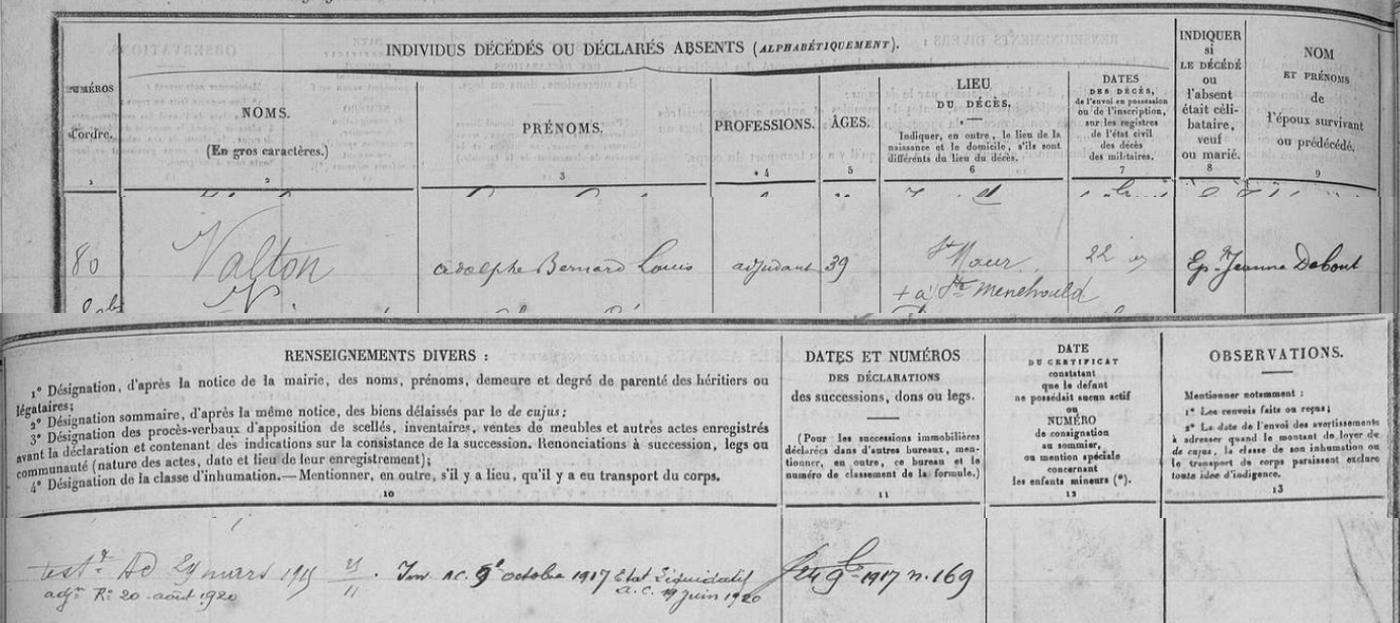 INDIVIDUS DÉCÉDÉS OU DÉCLARÉS ABSENTS (ALPHABÉTIQUEMENT).
NUMÉROS
d'ordre.
1
NOMS.
(En gros caractères.)
2
PRÉNOMS.
3
PROFESSIONS.
4
ÂGES.
5
LIEU
DU DÉCÈS.
Indiquer, en outre, le lieu de la
naissance et le domicile, s'ils sont
différents du lieu du décès.
6
DATES
DES DÉCÈS,
de l'envoi en possession
ou de l'inscription,
sur les registres
de l'état civil
des décès
des militaires.
7
INDIQUER
si
LE DÉCÉDÉ
ou
l'absent
était céli-
bataire,
veuf
ou marié.
8
NOM
ET PRÉNOMS
de
l'époux survivant
ou prédécédé.
9
80
Valton
adolphe Bernard Louis
adjudant
39
St Maur
+ a Ste Menehould
22
Ep. Jeanne Debout
RENSEIGNEMENTS DIVERS :
1° Désignation, d'après la notice de la mairie, des noms, prénoms, demeure et degré de parenté des héritiers ou
légataires;
2° Désignation sommaire, d'après la même notice, des biens délaissés par le de cujus;
3° Désignation des procès-verbaux d'apposition de scellés, inventaires, ventes de meubles et autres actes enregistrés
avant la déclaration et contenant des indications sur la consistance de la succession. Renonciations à succession, legs ou
communauté (nature des actes, date et lieu de leur enregistrement);
4° Désignation de la classe d'inhumation.—Mentionner, en outre, s'il y a lieu, qu'il y a eu transport du corps.
10
DATES ET NUMÉROS
DES DÉCLARATIONS
des successions, dons ou legs.
(Pour les successions immobilières
déclarées dans d'autres bureaux, men-
tionner, en outre, ce bureau et le
numéro de classement de la formule.)
11
DATE
DU CERTIFICAT
constatant
que le défunt
ne possédait aucun actif
ou
NUMÉRO
de consignation
au sommier,
ou mention spéciale
concernant
les enfants mineurs (*).
12
OBSERVATIONS.
Mentionner notamment :
1° Les renvois faits ou reçus;
2° La date de l'envoi des avertissements
à adresser quand le montant du loyer du
de cujus, la classe de son inhumation ou
le transport de corps paraissent exclure
toute idée d'indigence.
13
testt Ad 29 mars 1915 Inv AC. 9 octobre 1917 Etat Liquidatif
adjn Rt 20 août 1920 a.c. 19 juin 1920
1917 n. 169